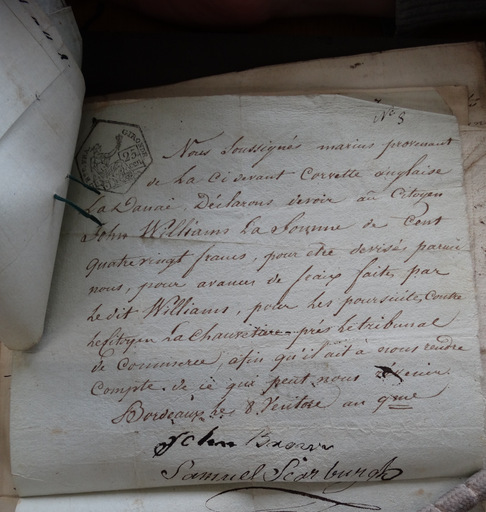 No 8
GIRONDE
25
Nous Soussignés marins provenant
de La Cidevant Corvette anglaise
La Danaé, Déclarons devoir au Citoyen
John Williams La Somme de Cent
quatrevingt francs, pour etre devisés parmi
nous, pour avances de fraix faite par
Le dit Williams, pour les poursuites Contre
Le Citoyen La Chauvetière près Le tribunal
de Commerce, afin qu'il ait à nous rendre
Compte de ce que peut nous revenir
Bordeaux les 8 Ventose an 9me
John Brown
Samuel Scarburgh